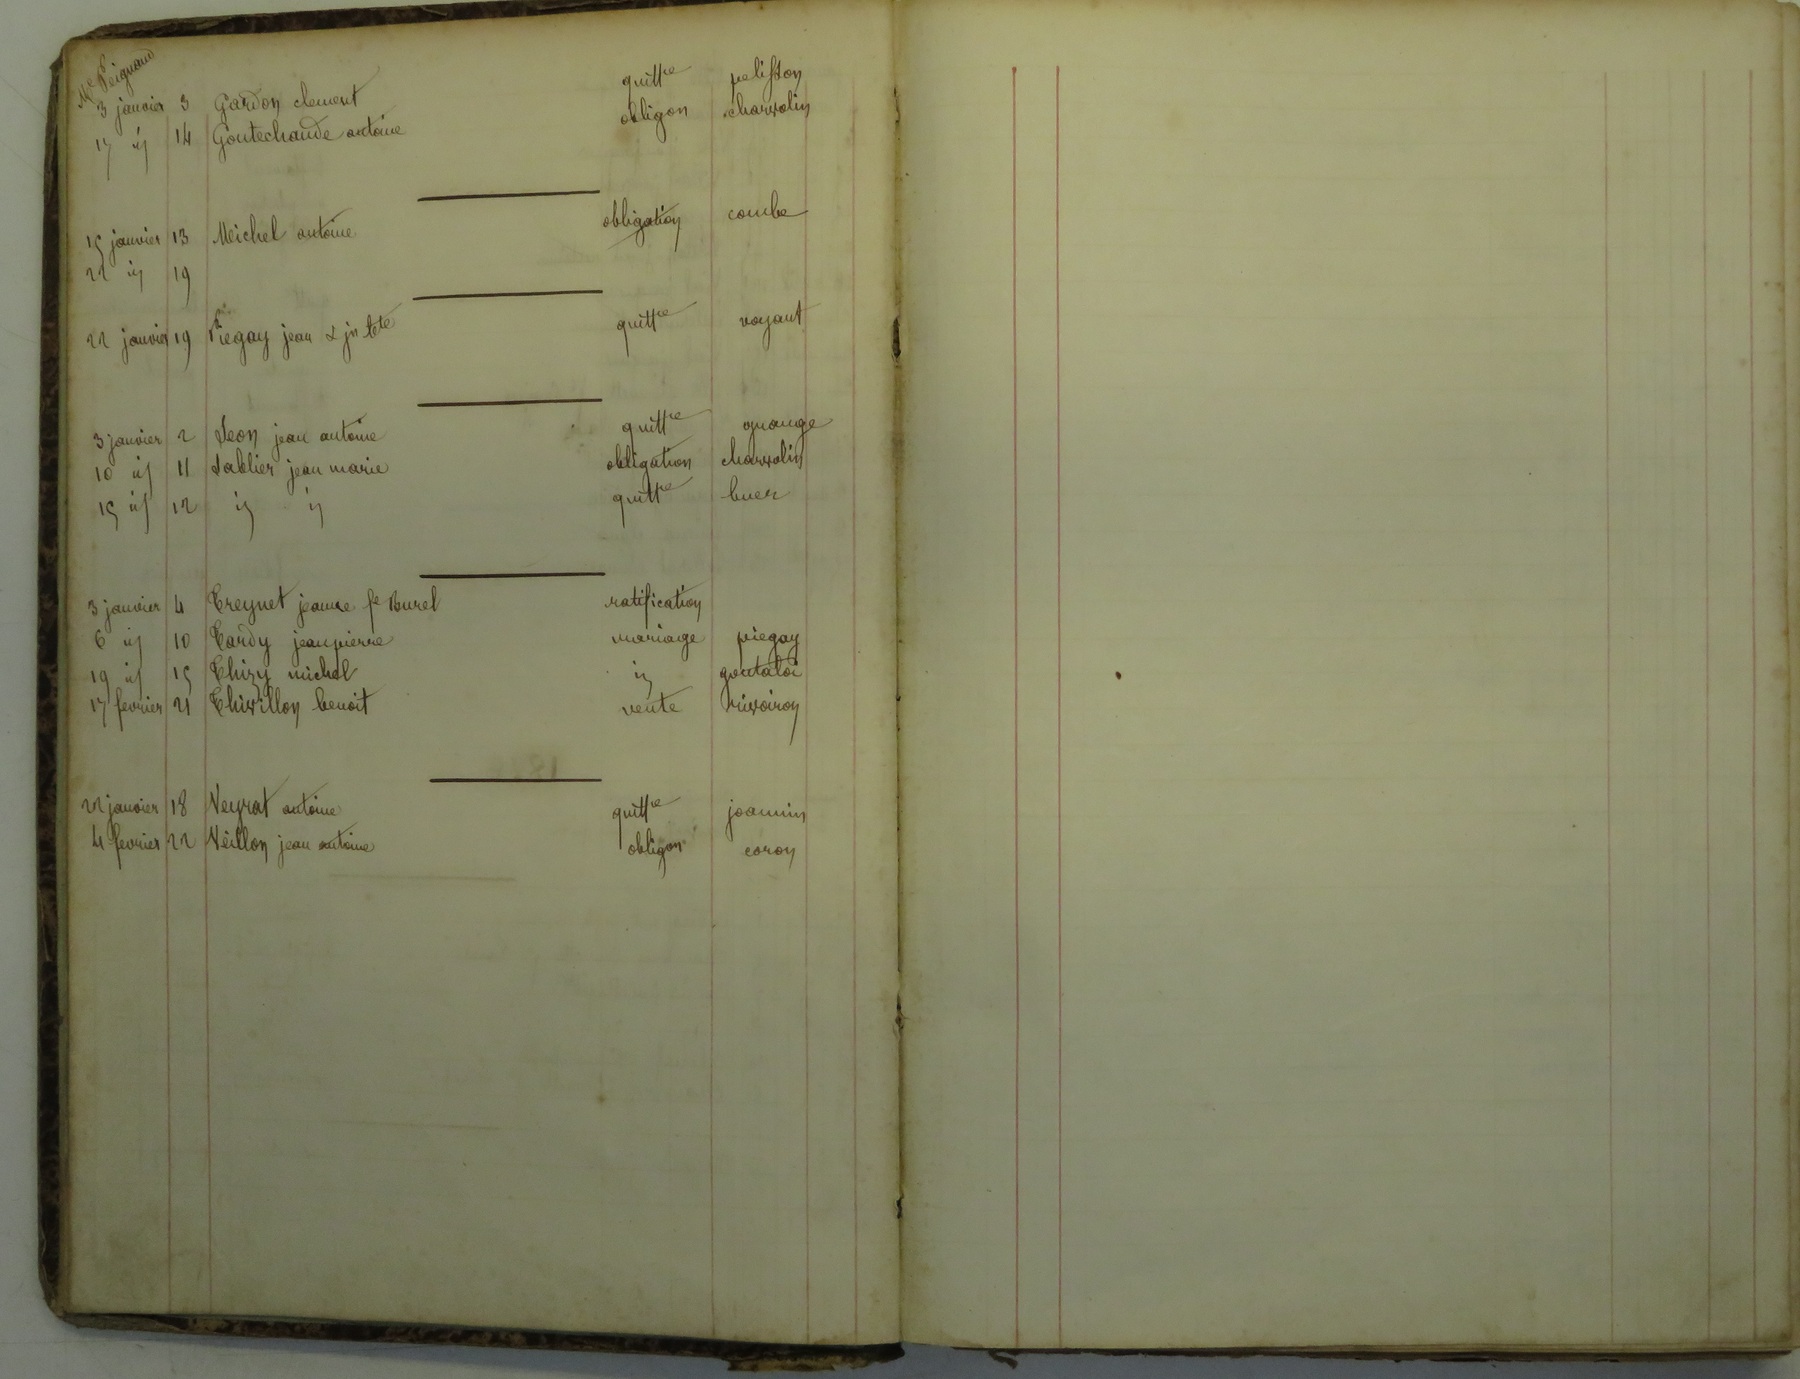 Me Peignaud
3 janvier 3 Gardon clement quittce pelisson
17 id 14 Goutechaude antoine obligon charvolin
15 janvier 13 Michel antoine obligation combe
22 id 19
22 janvier 19 Piegay jean & jn bte quittce voyant
3 janvier 2 Seon jean antoine quittce grange
10 id 11 Sablier jean marie obligation charvolin
15 id 12 id id quittce buer
3 janvier 4 Treynet jeanne fe Burel ratification
6 id 10 Tardy jean pierre mariage piegay
19 id 15 Thizy michel id
17 fevrier 21 Thivillon benoit vente rivoiron
22 janvier 18 Veyrat antoine quittce joannin
4 fevrier 22 Véillon jean antoine obligon coron